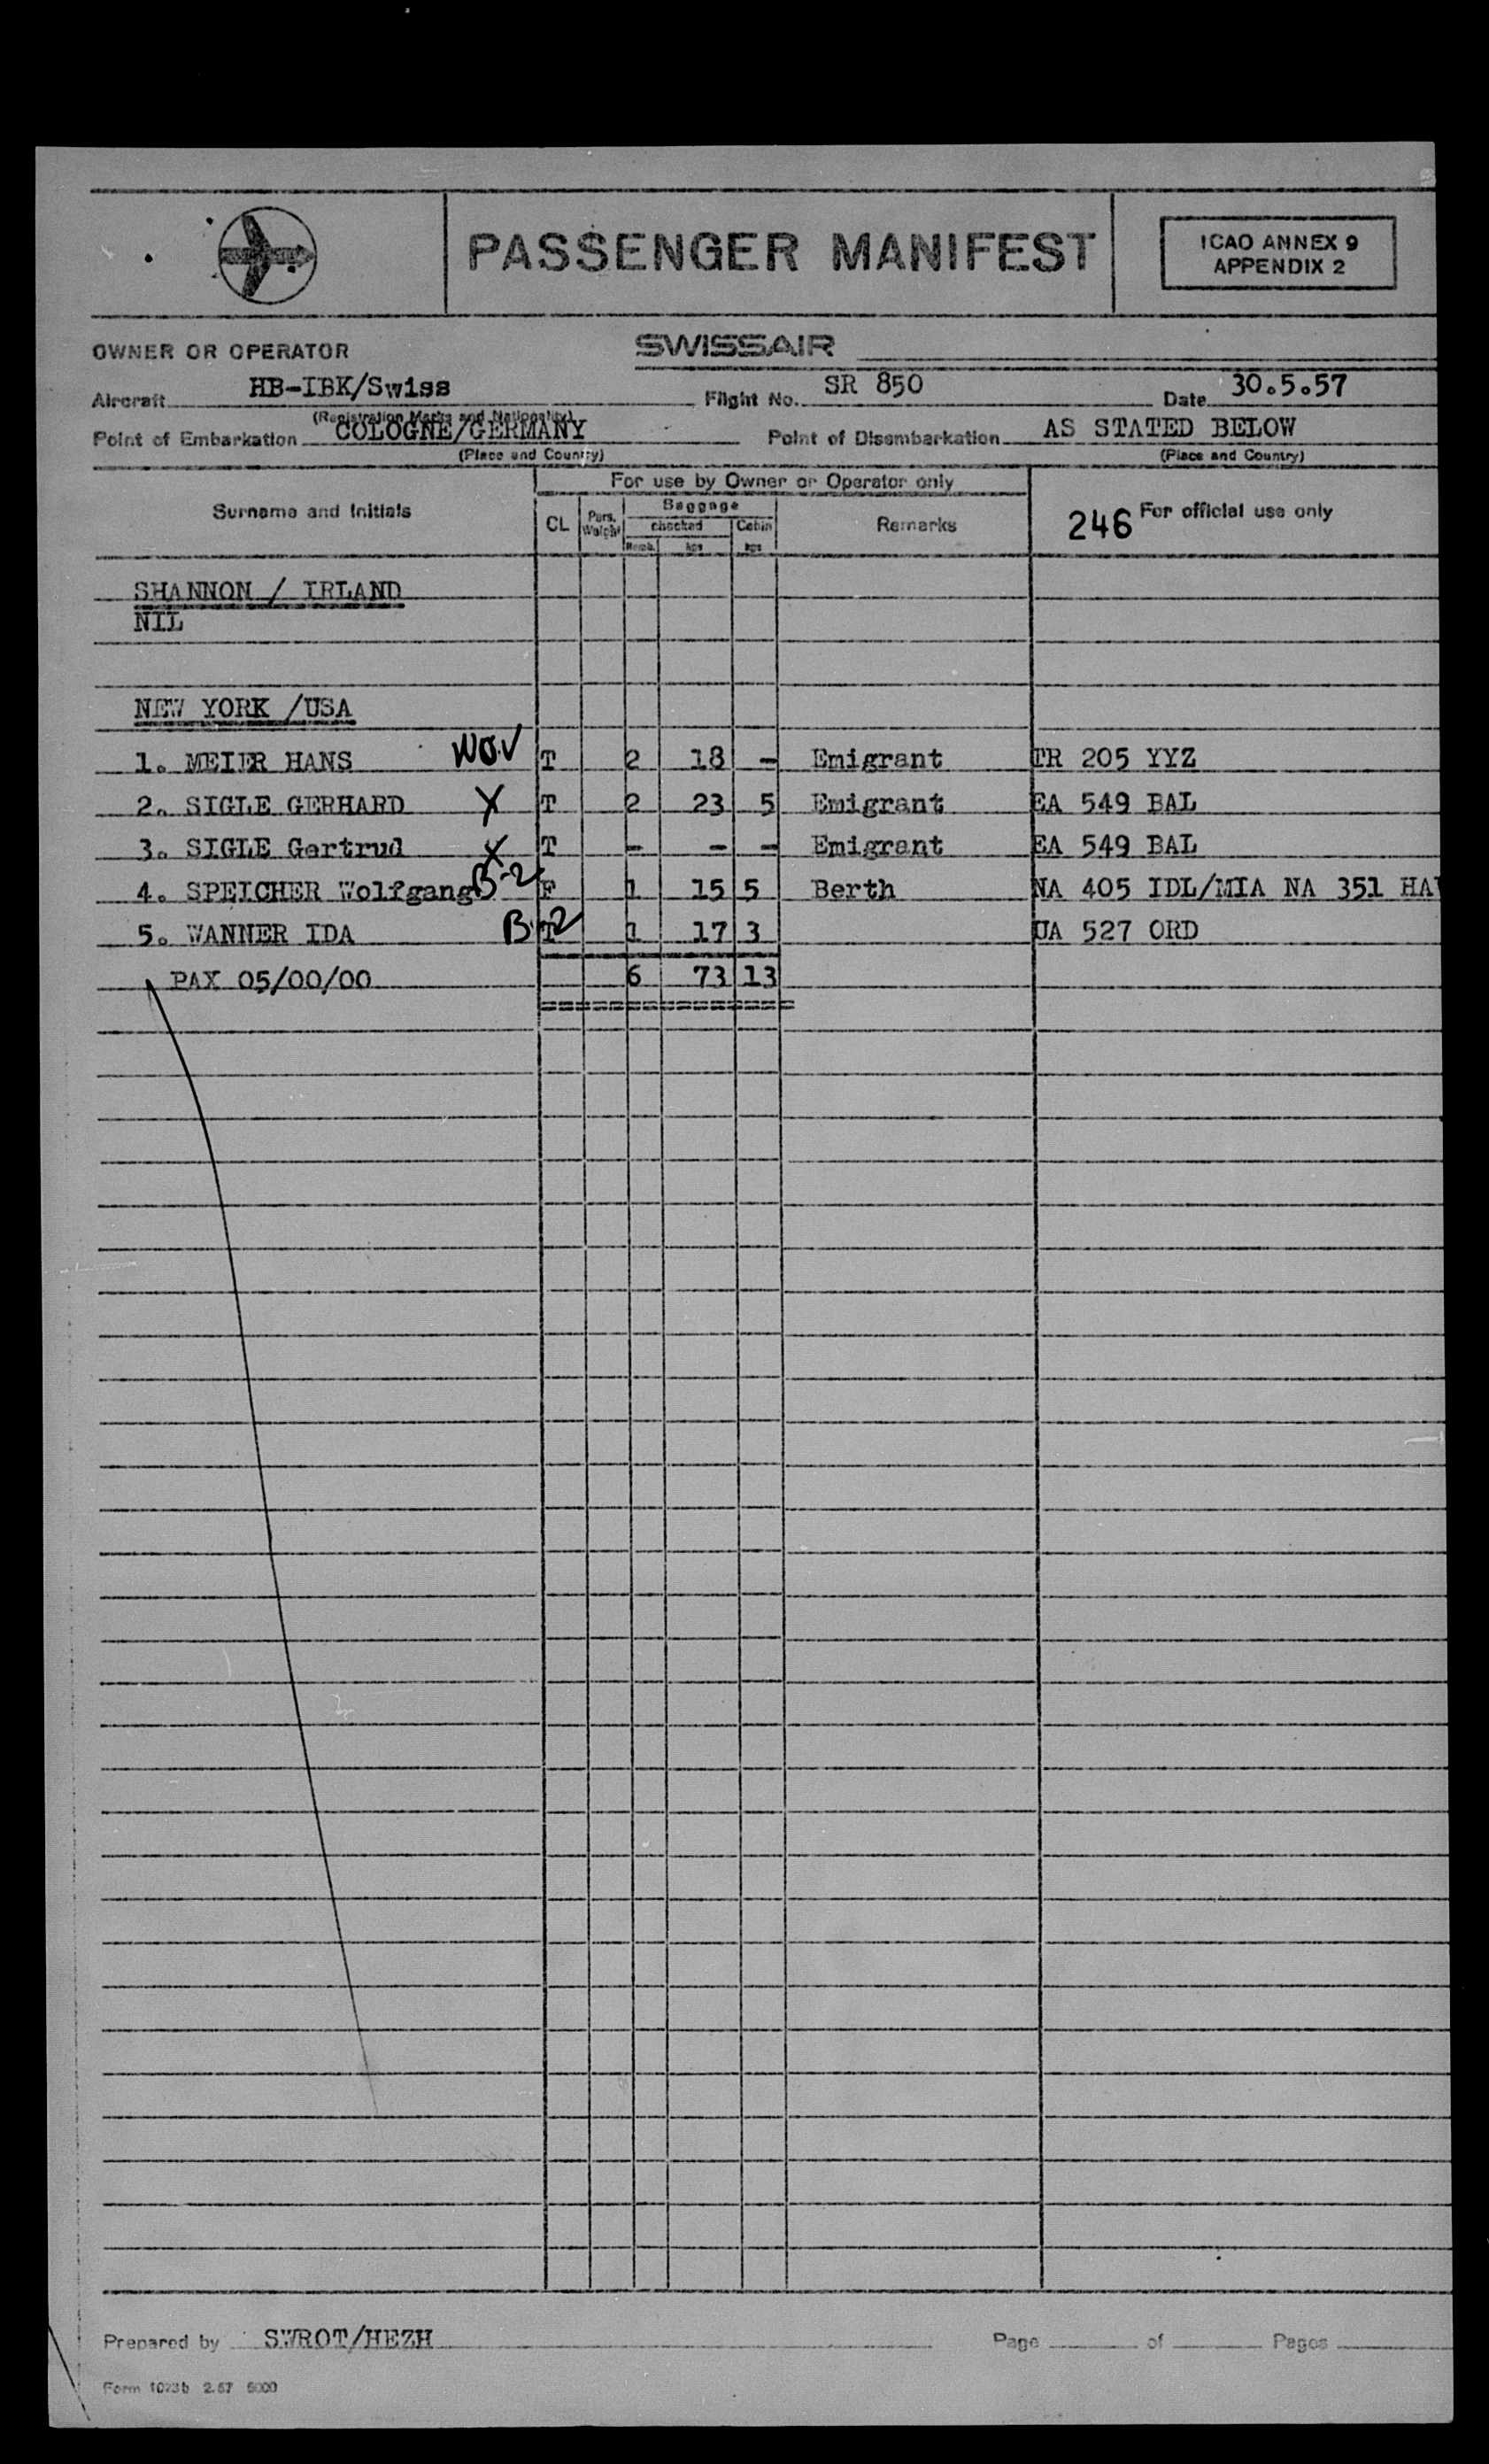 PASSENGER MANIFEST
ICAO ANNEX 9
APPENDIX 2
OWNER OR OPERATOR SWISSAIR
Aircraft HB-IBK/Swiss Flight No. SR 850 Date 30.5.57
(Registration Marks and Nationality)
Point of Embarkation COLOGNE/GERMANY Point of Disembarkation AS STATED BELOW
(Place and Country) (Place and Country)
For use by Owner or Operator only
Surname and Initials CL Pers. Weight Baggage checked Cabin kgs kgs Remarks 246 For official use only
SHANNON / IRLAND
NIL
NEW YORK /USA
1. MEIER HANS T 2 18 - Emigrant TR 205 YYZ
2. SIGLE GERHARD X T 2 23 5 Emigrant EA 549 BAL
3. SIGLE Gertrud X T - - - Emigrant EA 549 BAL
4. SPEICHER Wolfgang B-2 F 1 15 5 Berth NA 405 IDL/MIA NA 351 HAV
5. WANNER IDA B-2 T 1 17 3 UA 527 ORD
PAX 05/00/00 6 73 13
==================
Prepared by SWROT/HEZH Page of Pages
Form 1023b 2.57 5000